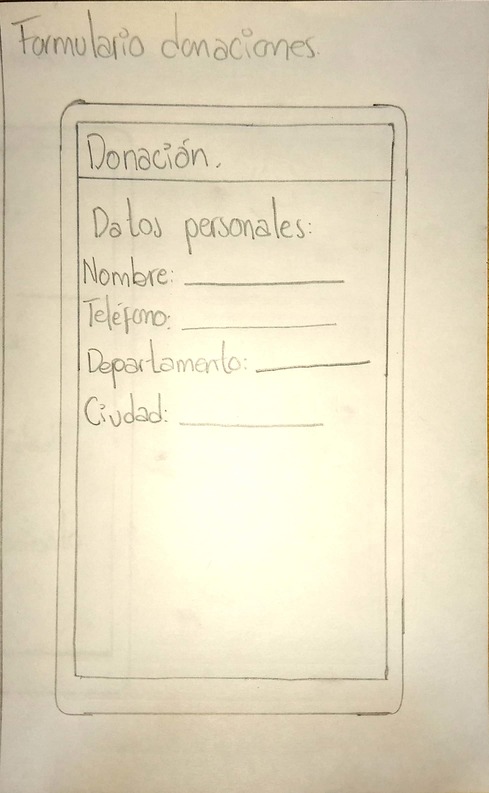 Formulario donaciones.
Donación.
Datos personales:
Nombre: ____________
Teléfono: ____________
Departamento: _________
Ciudad: ___________